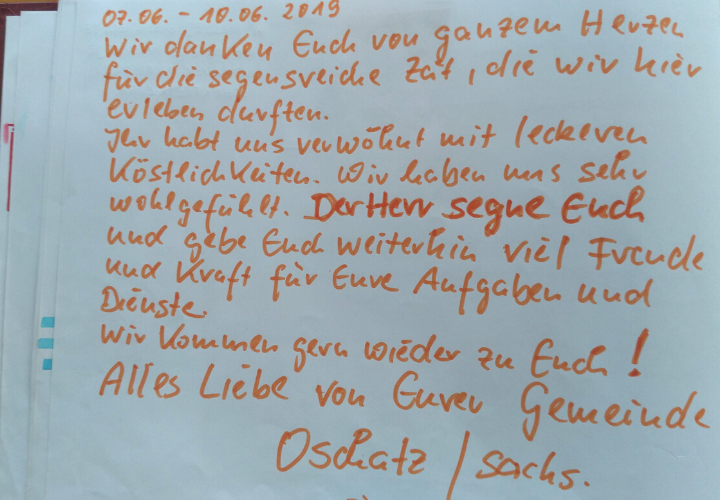 07.06. - 10.06. 2019
Wir danken Euch von ganzem Herzen
für die segensreiche Zeit, die wir hier
erleben durften.
Ihr habt uns verwöhnt mit leckeren
Köstlichkeiten. Wir haben uns sehr
wohlgefühlt. Der Herr segne Euch
und gebe Euch weiterhin viel Freude
und Kraft für Eure Aufgaben und
Dienste.
Wir kommen gern wieder zu Euch!
Alles Liebe von Eurer Gemeinde
Oschatz / Sachs.